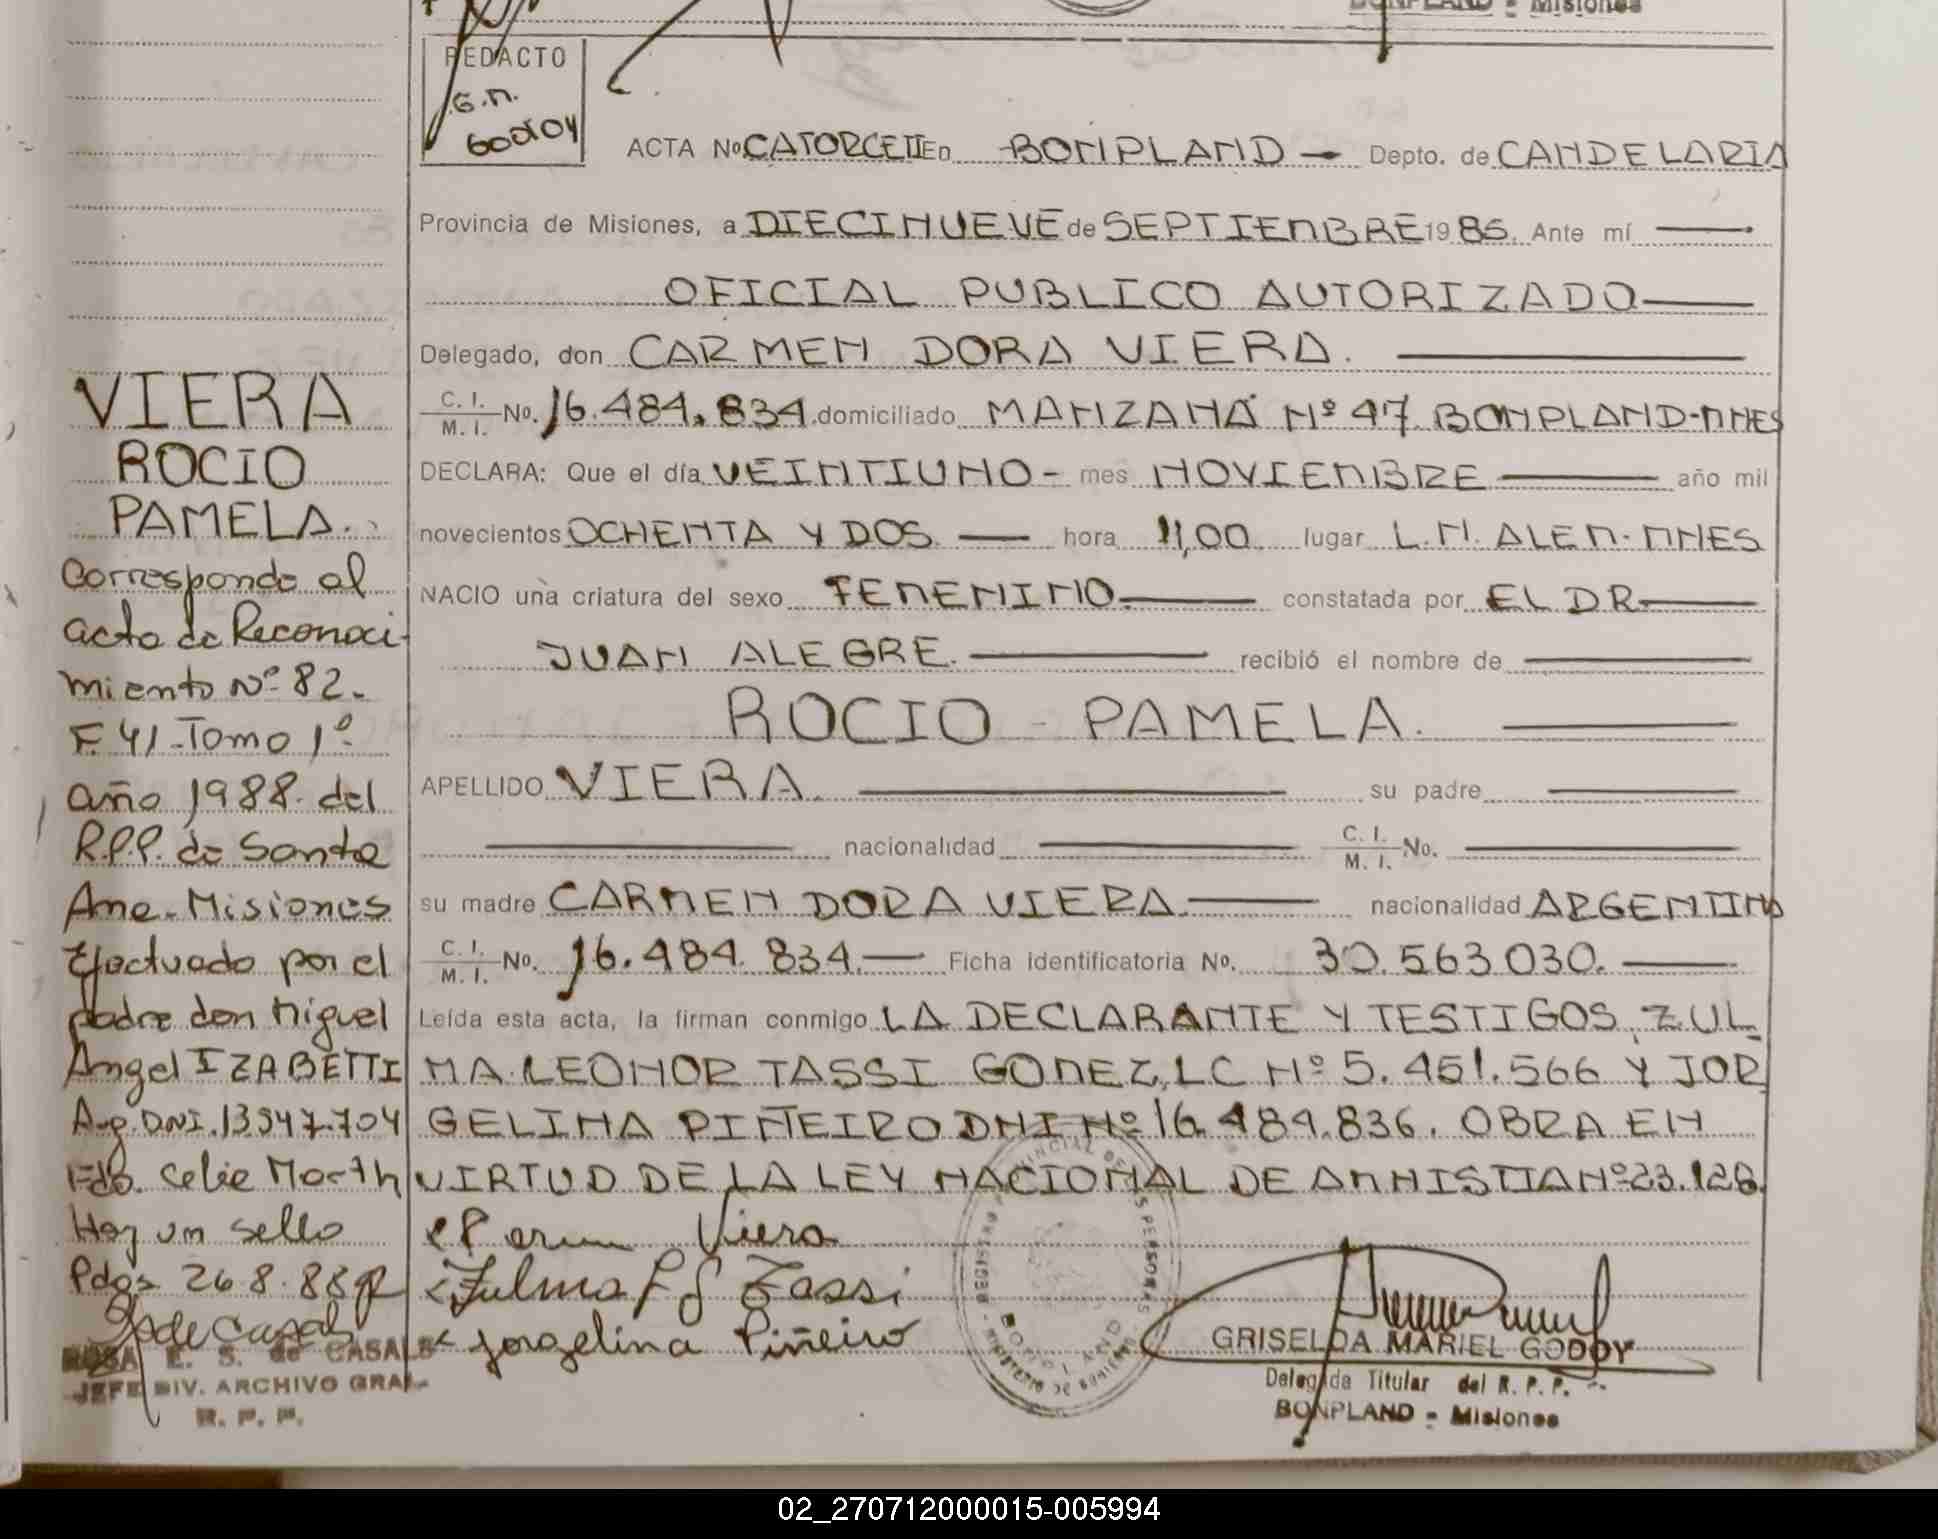 BONPLAND - Misiones
REDACTO
G.M.
GODOY
ACTA No CATORCE II En BONPLAND — Depto. de CANDELARIA
Provincia de Misiones, a DIECINUEVE de SEPTIEMBRE 1985. Ante mí —
OFICIAL PUBLICO AUTORIZADO —
Delegado, don CARMEN DORA VIERA. —
C. I.
M. I. No. 16.484.834. domiciliado MANZANA Nº 47 BONPLAND-MNES
DECLARA: Que el día VEINTIUNO - mes NOVIEMBRE — año mil
novecientos OCHENTA Y DOS — hora 11,00 lugar L.N. ALEM-MNES
NACIO una criatura del sexo FEMENINO. — constatada por EL DR. —
JUAN ALEGRE. — recibió el nombre de —
ROCIO - PAMELA. —
APELLIDO VIERA. — su padre —
— nacionalidad — C. I.
M. I. No. —
su madre CARMEN DORA VIERA. — nacionalidad ARGENTINA
C. I.
M. I. No. 16.484.834. — Ficha identificatoria No. 30.563.030. —
Leída esta acta, la firman conmigo LA DECLARANTE Y TESTIGOS, ZUL
MA LEONOR TASSI GOMEZ, LC Nº 5.451.566 Y JOR
GELINA PIÑEIRO DNI Nº 16.484.836. OBRA EN
VIRTUD DE LA LEY NACIONAL DE AMNISTIA Nº 23.128.
Viera
Zulma L G Tassi
Jorgelina Piñeiro
GRISELDA MARIEL GODOY
Delegada Titular del R. P. P.
BONPLAND - Misiones
VIERA
ROCIO
PAMELA.
Corresponde al
acta de Reconoci-
miento Nº 82.
F. 41 - Tomo 1º
año 1988. del
R.P.P. de Santa
Ana - Misiones
Efectuado por el
padre don Miguel
Angel IZABETTI
Arg. DNI. 13.547.704
Fdo. Celie Morth
Hay un sello
Pdas 26.8.88
ROSA E. S. de CASALS
JEFE DIV. ARCHIVO GRAL
R. P. P.
02_270712000015-005994